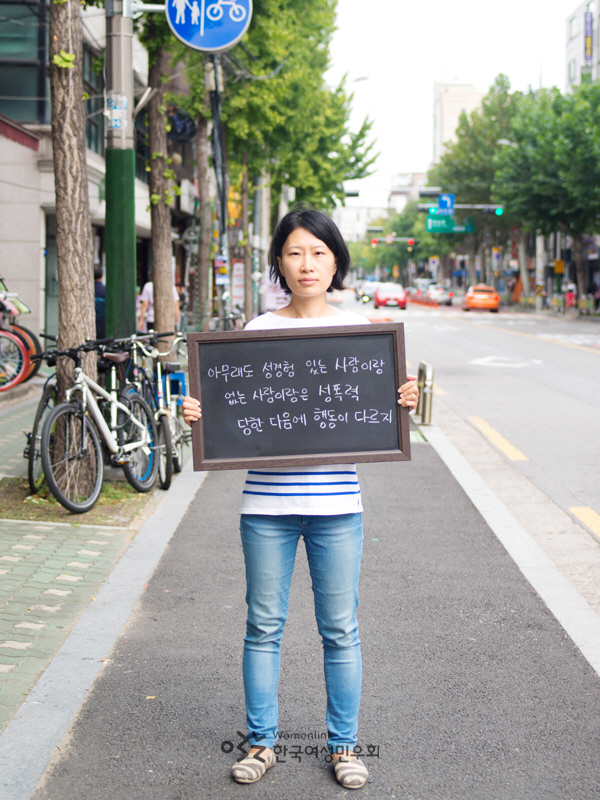 아무래도 성경험 있는 사람이랑
없는 사람이랑은 성폭력
당한 다음에 행동이 다르지
Womenlink
한국여성민우회